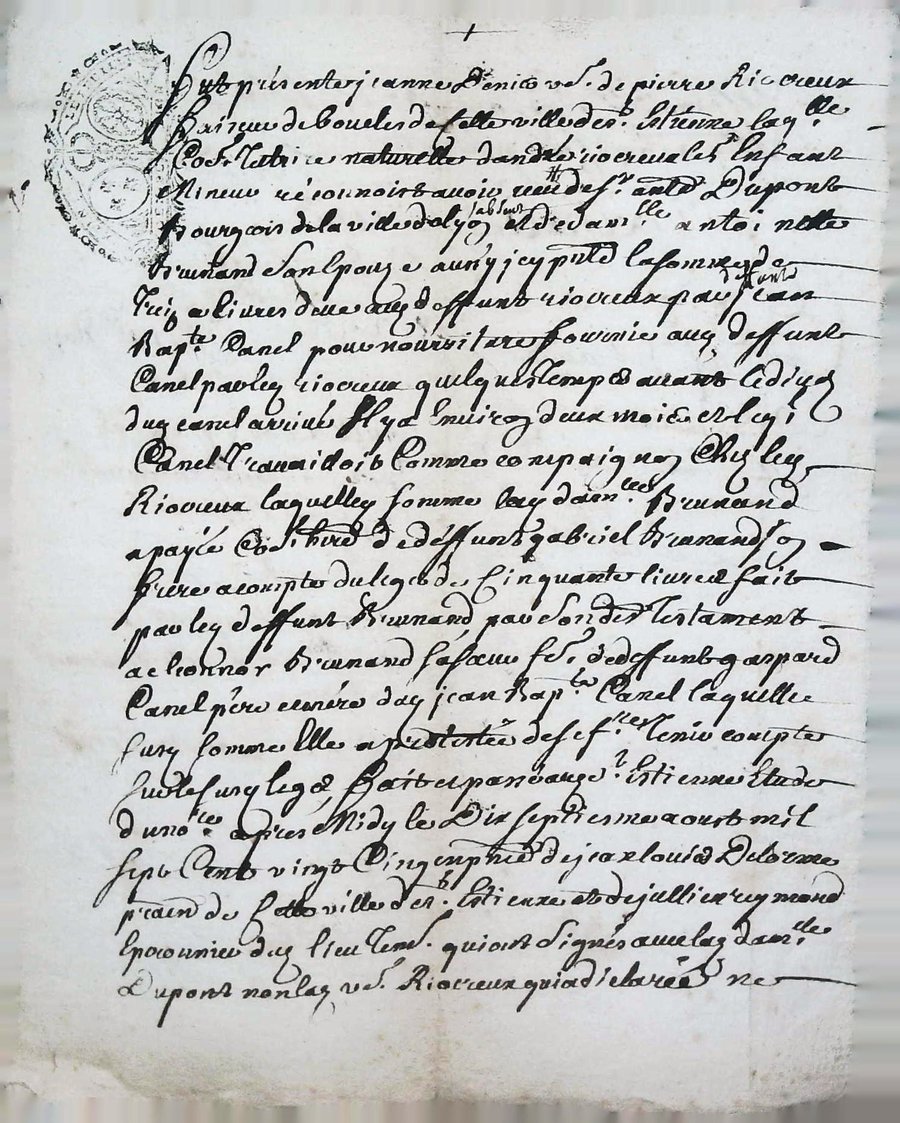 Fut présente jeanne Denis ve. de pierre Riocreux
de boucles de cette ville de st. Estienne laqlle
Coe. Tutrice naturelle dandré riocreux les Enfant
Mineur réconnoist avoir receu de sr. antd Dupont
Bourgeois de la ville de lyon absent et de damlle antoinette
Brunand Son Epouze aussy icy pnte la somme de
livres deue aud deffunt riocreux par deffunt jean
Bapte Canel pour nourriture fournie aud deffunt
Canel par led riocreux quelques temps avant le deçed
dud canel arrivé Il y a Environ deux mois et led
Canel Travailloit Comme compaignon Chez led
Riocreux laquelle somme lad damlle Brunand
a payée Coe. hire de deffunt gabriel Brunand son
frere a compte du legs de Cinquante livres fait
par led deffunt Brunand par son der Testament
a Brunand sa sœur fe. de deffunt gaspard
Canel père et mère dud jean Bapte Canel laquelle
susd somme Elle a protestée de se f.re Tenir compte
sur le susd legs Fait et passé a st. Estienne Etude
du nore après Midy le Dix septiesme aoust mil
sept Cents vingt Cinq en pnce de jean louis Delorme
pratn de Cette ville de st. Estienne et de jullien reymond
Eperonnier dud lieu Tems. qui ont Signés avec lad damlle
Dupont non lad ve. Riocreux qui a déclarée ne